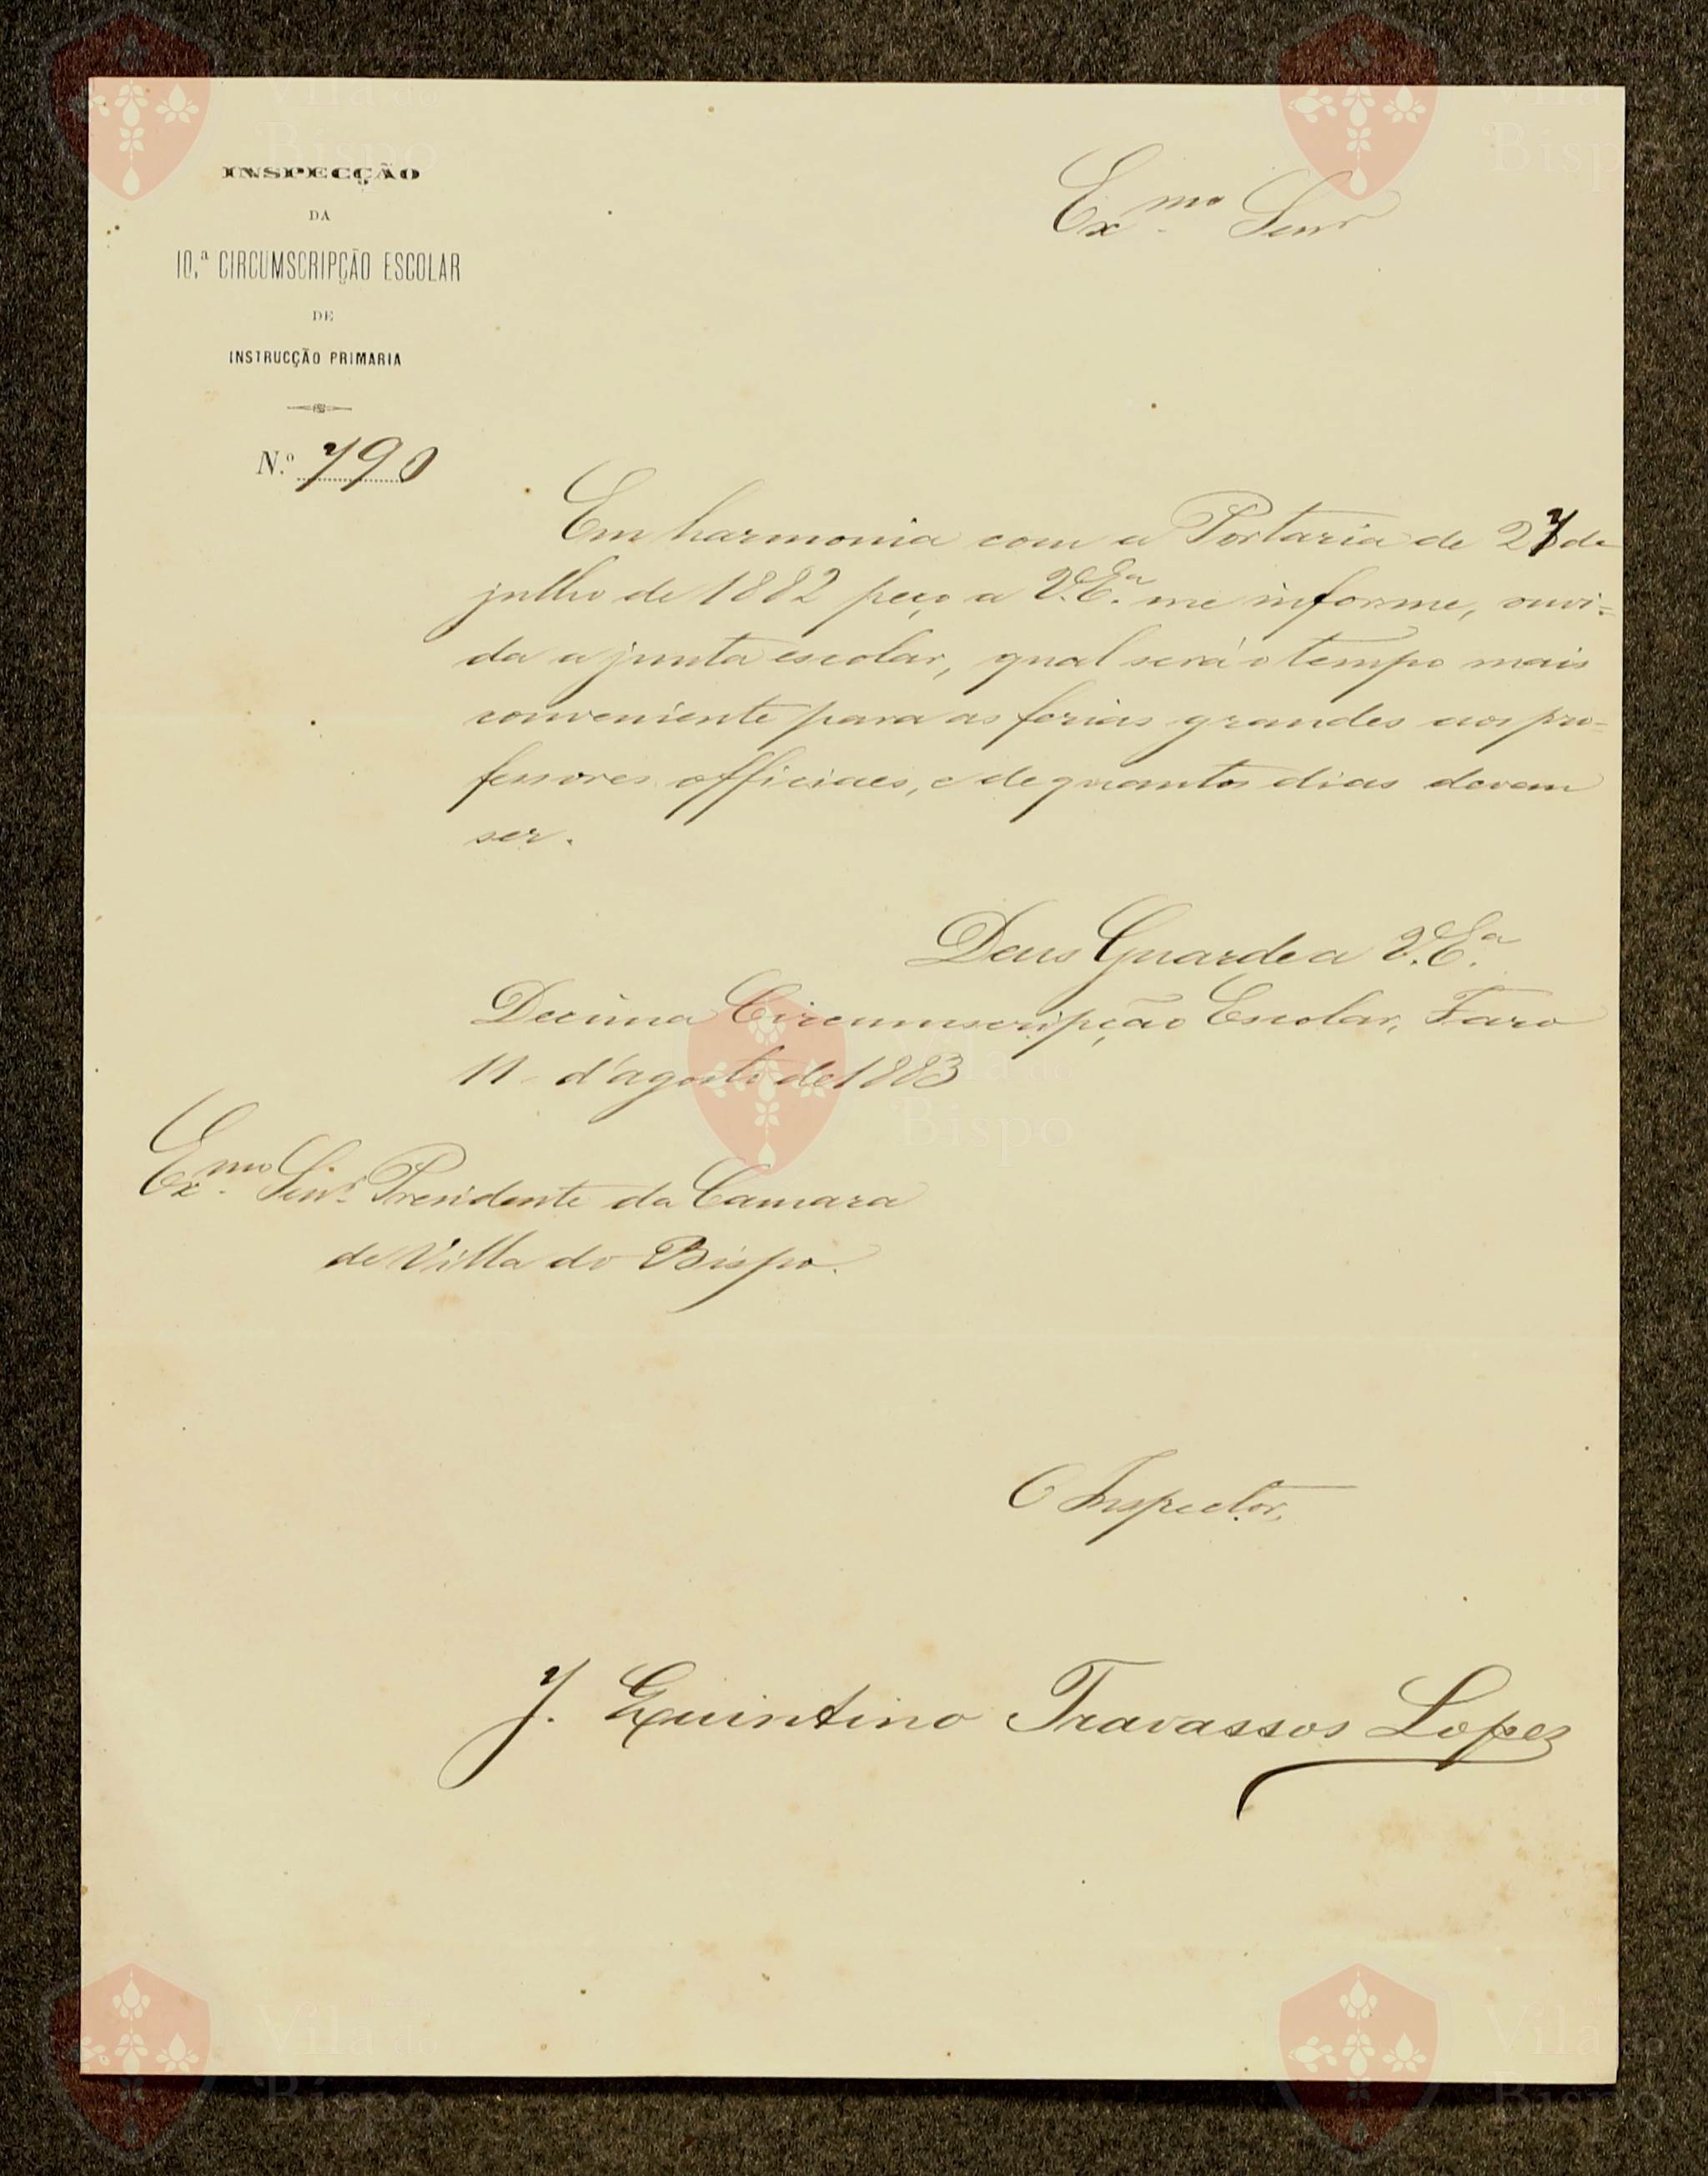 INSPECÇÃO
DA
10.ª CIRCUMSCRIPÇÃO ESCOLAR
DE
INSTRUCÇÃO PRIMARIA
N.º 790
Exmo Senr
Em harmonia com a Portaria de 27 de
julho de 1882 peço a V. E.ª me informe, ouvi=
da a junta escolar, qual será o tempo mais
conveniente para as ferias grandes aos pro=
fessores officiaes, e de quantos dias devem
ser.
Deus Guarde a V. E.ª
Decima Circumscripção Escolar, Faro
11 d'agosto de 1883
Exmo Senr Presidente da Camara
de Villa do Bispo.
O Inspector,
J. Quintino Travassos Lopez
Vila do
Bispo